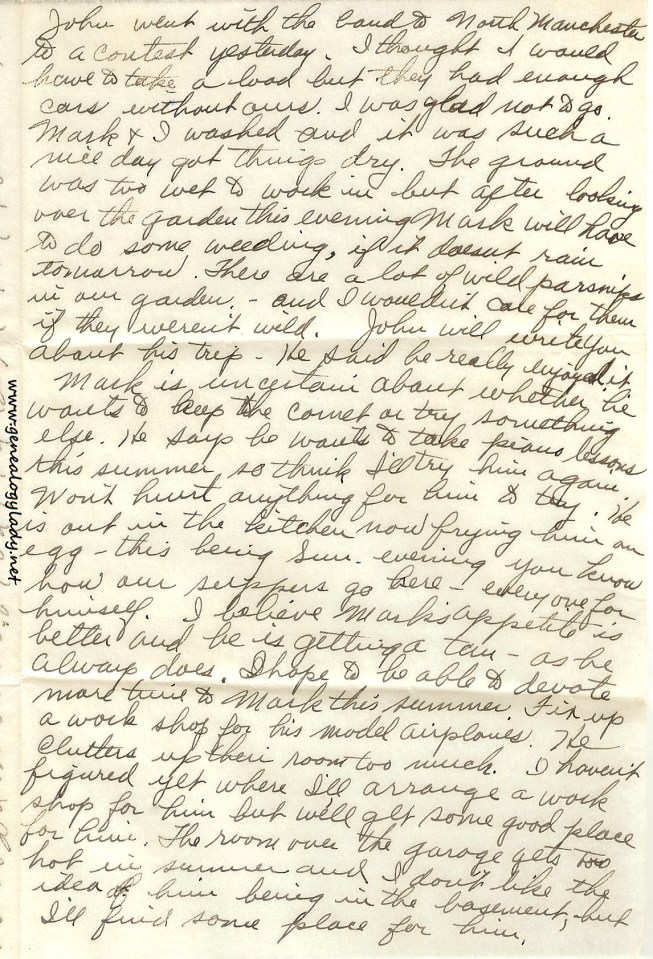 John went with the band to North Manchester
to a contest yesterday. I thought I would
have to take a load but they had enough
cars without ours. I was glad not to go.
Mark & I washed and it was such a
nice day got things dry. The ground
was too wet to work in but after looking
over the garden this evening Mark will have
to do some weeding, if it doesnt rain
tomorrow. There are a lot of wild parsnips
in our garden. - and I wouldn't care for them
if they weren't wild. John will write you
about his trip - He said he really enjoyed it
Mark is uncertain about whether he
wants to keep the cornet or try something
else. He says he wants to take piano lessons
this summer, so think I'll try him again.
Won't hurt anything for him to try. He
is out in the kitchen now frying him an
egg - this being Sun. evening you know
how our suppers go here - everyone for
himself. I believe Mark's appetite is
better and he is getting a tan - as he
always does. I hope to be able to devote
more time to Mark this summer. Fix up
a work shop for his model airplanes. He
clutters up their room too much. I haven't
figured yet where I'll arrange a work
shop for him but we'll get some good place
for him. The room over the garage gets too
hot in summer and I don't like the
idea of him being in the basement, but
I'll find some place for him.
www.genealogylady.net